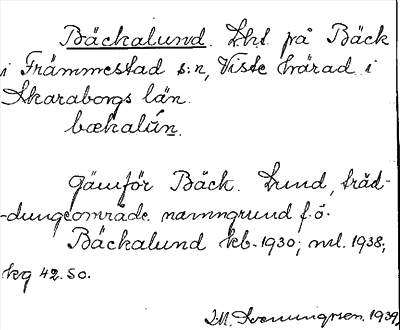 Bäckalund. Lht på Bäck
i Främmestad s:n, Viste härad i
Skaraborgs län.
bækalún.
Jämför Bäck. Lund, träd-
-dungeområde. namngrund f.ö.
Bäckalund kb. 1930; ml. 1938;
kg 42. So.
1939